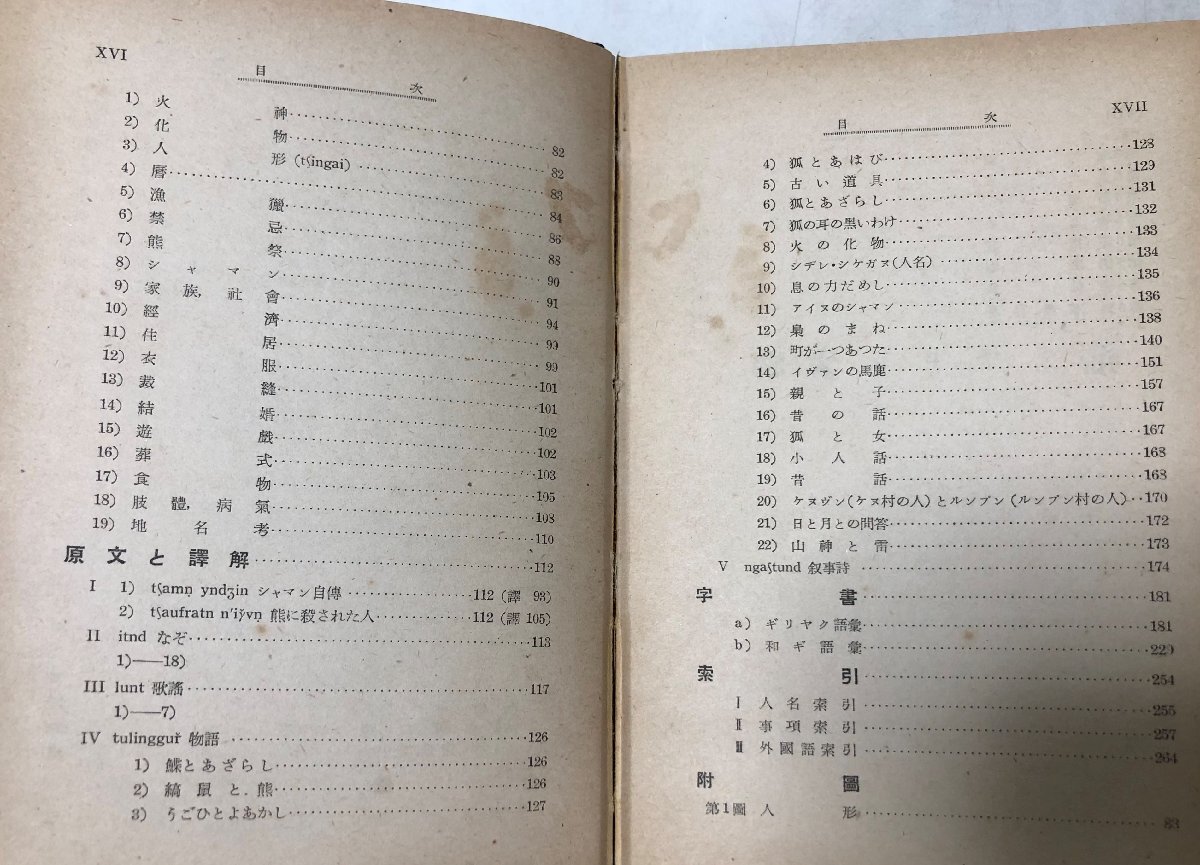 XVI
目次
1) 火神 82
2) 化物 82
3) 人形 (tʕingai) 83
4) 暦 84
5) 漁獵 86
6) 禁忌 88
7) 熊祭 90
8) シャマン 91
9) 家族, 社會 94
10) 經濟 99
11) 住居 99
12) 衣服 101
13) 裁縫 101
14) 結婚 102
15) 遊戲 102
16) 葬式 103
17) 食物 105
18) 肢體, 病氣 108
19) 地名考 110
原文と譯解 112
I 1) tʕamṇ yndʒin シャマン自傳 112 (譯 93)
2) tʕaufratn n'iy̌vṇ 熊に殺された人 112 (譯 105)
II itnd なぞ 113
1)——18)
III lunt 歌謠 117
1)——7)
IV tulingguř 物語 126
1) 鰈とあざらし 126
2) 縞鼠と熊 126
3) うごひとよあかし 127
XVII
目次
4) 狐とあはび 128
5) 古い道具 129
6) 狐とあざらし 131
7) 狐の耳の黒いわけ 132
8) 火の化物 133
9) シデレ・シケガヌ(人名) 134
10) 息の力だめし 135
11) アイヌのシャマン 136
12) 梟のまね 138
13) 町が一つあつた 140
14) イヴァンの馬鹿 151
15) 親と子 157
16) 昔の話 167
17) 狐と女 167
18) 小人話 168
19) 昔話 168
20) ケヌヴン(ケヌ村の人)とルンブン(ルンブン村の人) 170
21) 日と月との問答 172
22) 山神と雷 173
V ngaʕtund 叙事詩 174
字書 181
a) ギリヤク語彙 181
b) 和ギ語彙 229
索引 254
I 人名索引 255
II 事項索引 257
III 外國語索引 264
附圖
第1圖 人形 83